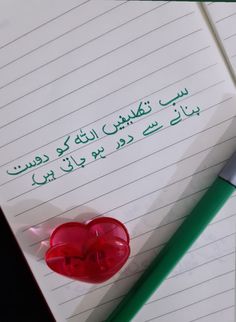 سب تکلیفیں اللّٰہ کو دوست
بنانے سے دور ہو جاتی ہیں۔